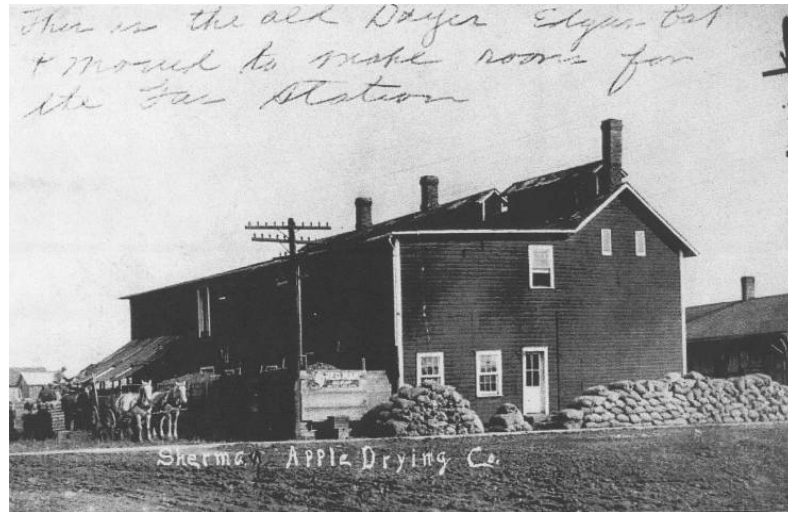 This is the old Dryer Edgar
& moved to make room for
the Gas Station
Sherman Apple Drying Co.